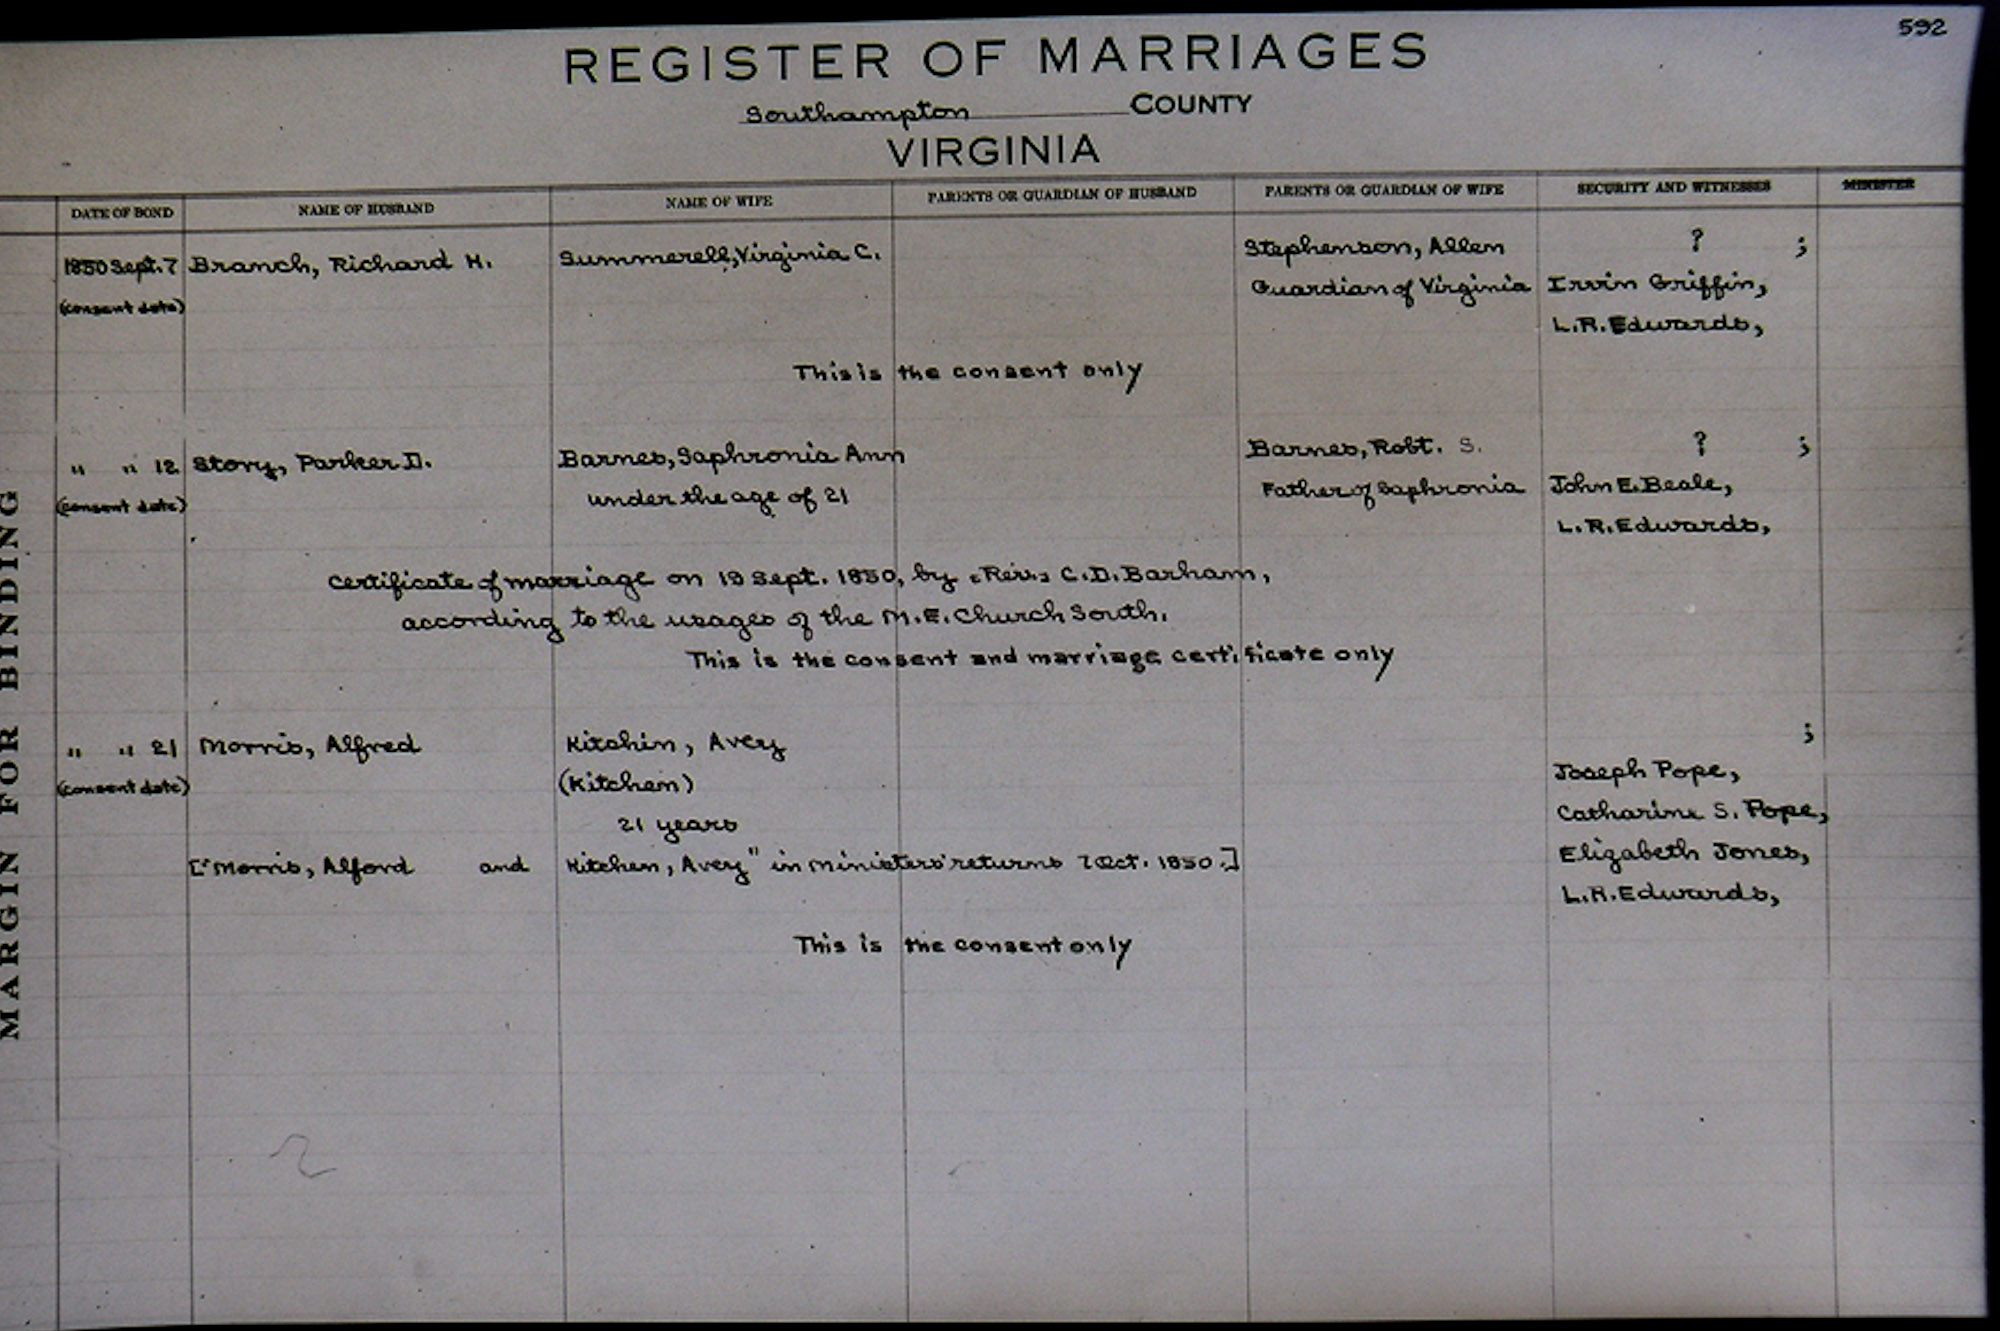 592
REGISTER OF MARRIAGES
Southampton COUNTY
VIRGINIA
DATE OF BOND NAME OF HUSBAND NAME OF WIFE PARENTS OR GUARDIAN OF HUSBAND PARENTS OR GUARDIAN OF WIFE SECURITY AND WITNESSES MINISTER
1850 Sept. 7 Branch, Richard H. Summerell, Virginia C. Stephenson, Allen ? ;
(consent date) Guardian of Virginia Irvin Griffin,
L.R. Edwards,
This is the consent only
" " 12 Story, Parker D. Barnes, Saphronia Ann Barnes, Robt. S. ? ;
(consent date) under the age of 21 Father of Saphronia John E. Beale,
L.R. Edwards,
Certificate of marriage on 19 Sept. 1850, by (Rev.) C.D. Barham,
according to the usages of the M.E. Church South.
This is the consent and marriage certificate only
" " 21 Morris, Alfred Kitchin, Avery ;
(consent date) (Kitchen) Joseph Pope,
21 years Catharine S. Pope,
["Morris, Alford and Kitchen, Avery" in Ministers' returns 7 Oct. 1850.] Elizabeth Jones,
L.R. Edwards,
This is the consent only
MARGIN FOR BINDING